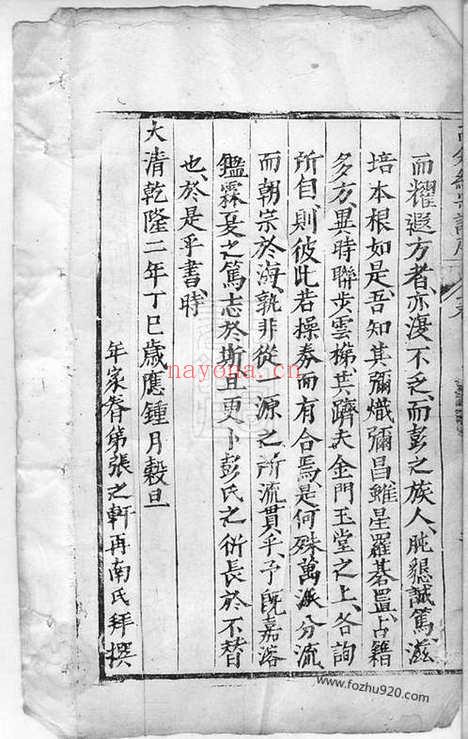 而耀遐方者亦復不乏而彭之族人、肫懇誠篤、滋
培本根如是、吾知其彌熾彌昌雖星羅碁置、占籍
多方、異時聯步雲梯、共躋夫金門玉堂之上、各詢
所自、則彼此若操券而有合焉、是何殊萬派分流
而朝宗於海、孰非從一源之所流貫乎、予既嘉溶
鑑霖、之篤志於斯、且更卜彭氏之衍長於不替
也、於是乎書、時
大清乾隆二年丁巳歲應鍾月穀旦
年家眷弟張之軒再南氏拜撰
nayona.cn
www.fozhu920.com